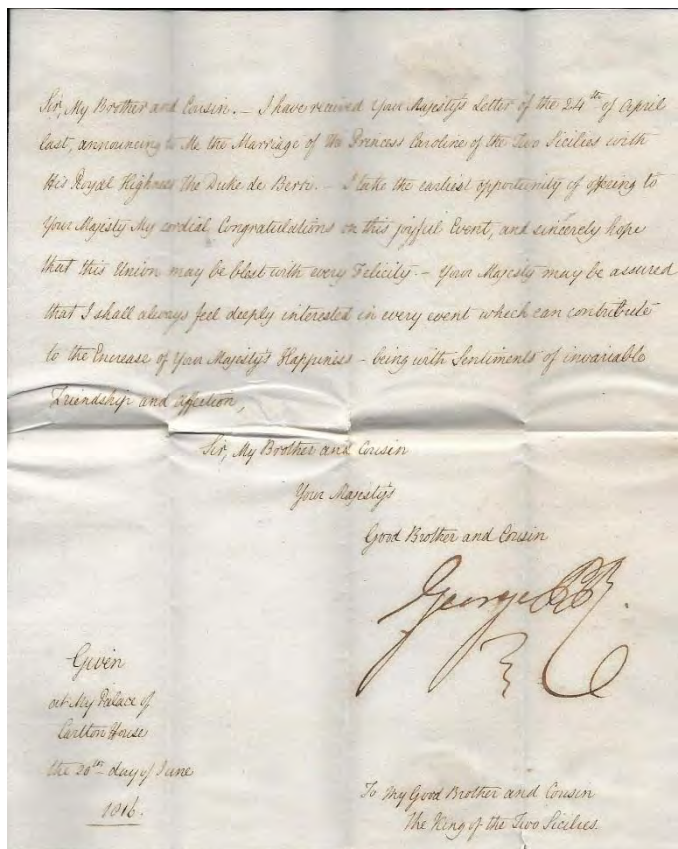 Sir, My Brother and Cousin. – I have received Your Majesty's Letter of the 24th of April
last, announcing to Me the Marriage of the Princess Caroline of the Two Sicilies with
His Royal Highness the Duke de Berri. – I take the earliest opportunity of offering to
Your Majesty My cordial Congratulations on this joyful Event, and sincerely hope
that this Union may be blest with every Felicity. – Your Majesty may be assured
that I shall always feel deeply interested in every event which can contribute
to the Encrease of Your Majesty's Happiness – being with Sentiments of invariable
Friendship and affection,
Sir, My Brother and Cousin
Your Majesty's
Good Brother and Cousin
George PR
Given
at My Palace of
Carlton House
the 20th day of June
1816.
To My Good Brother and Cousin
The King of the Two Sicilies.